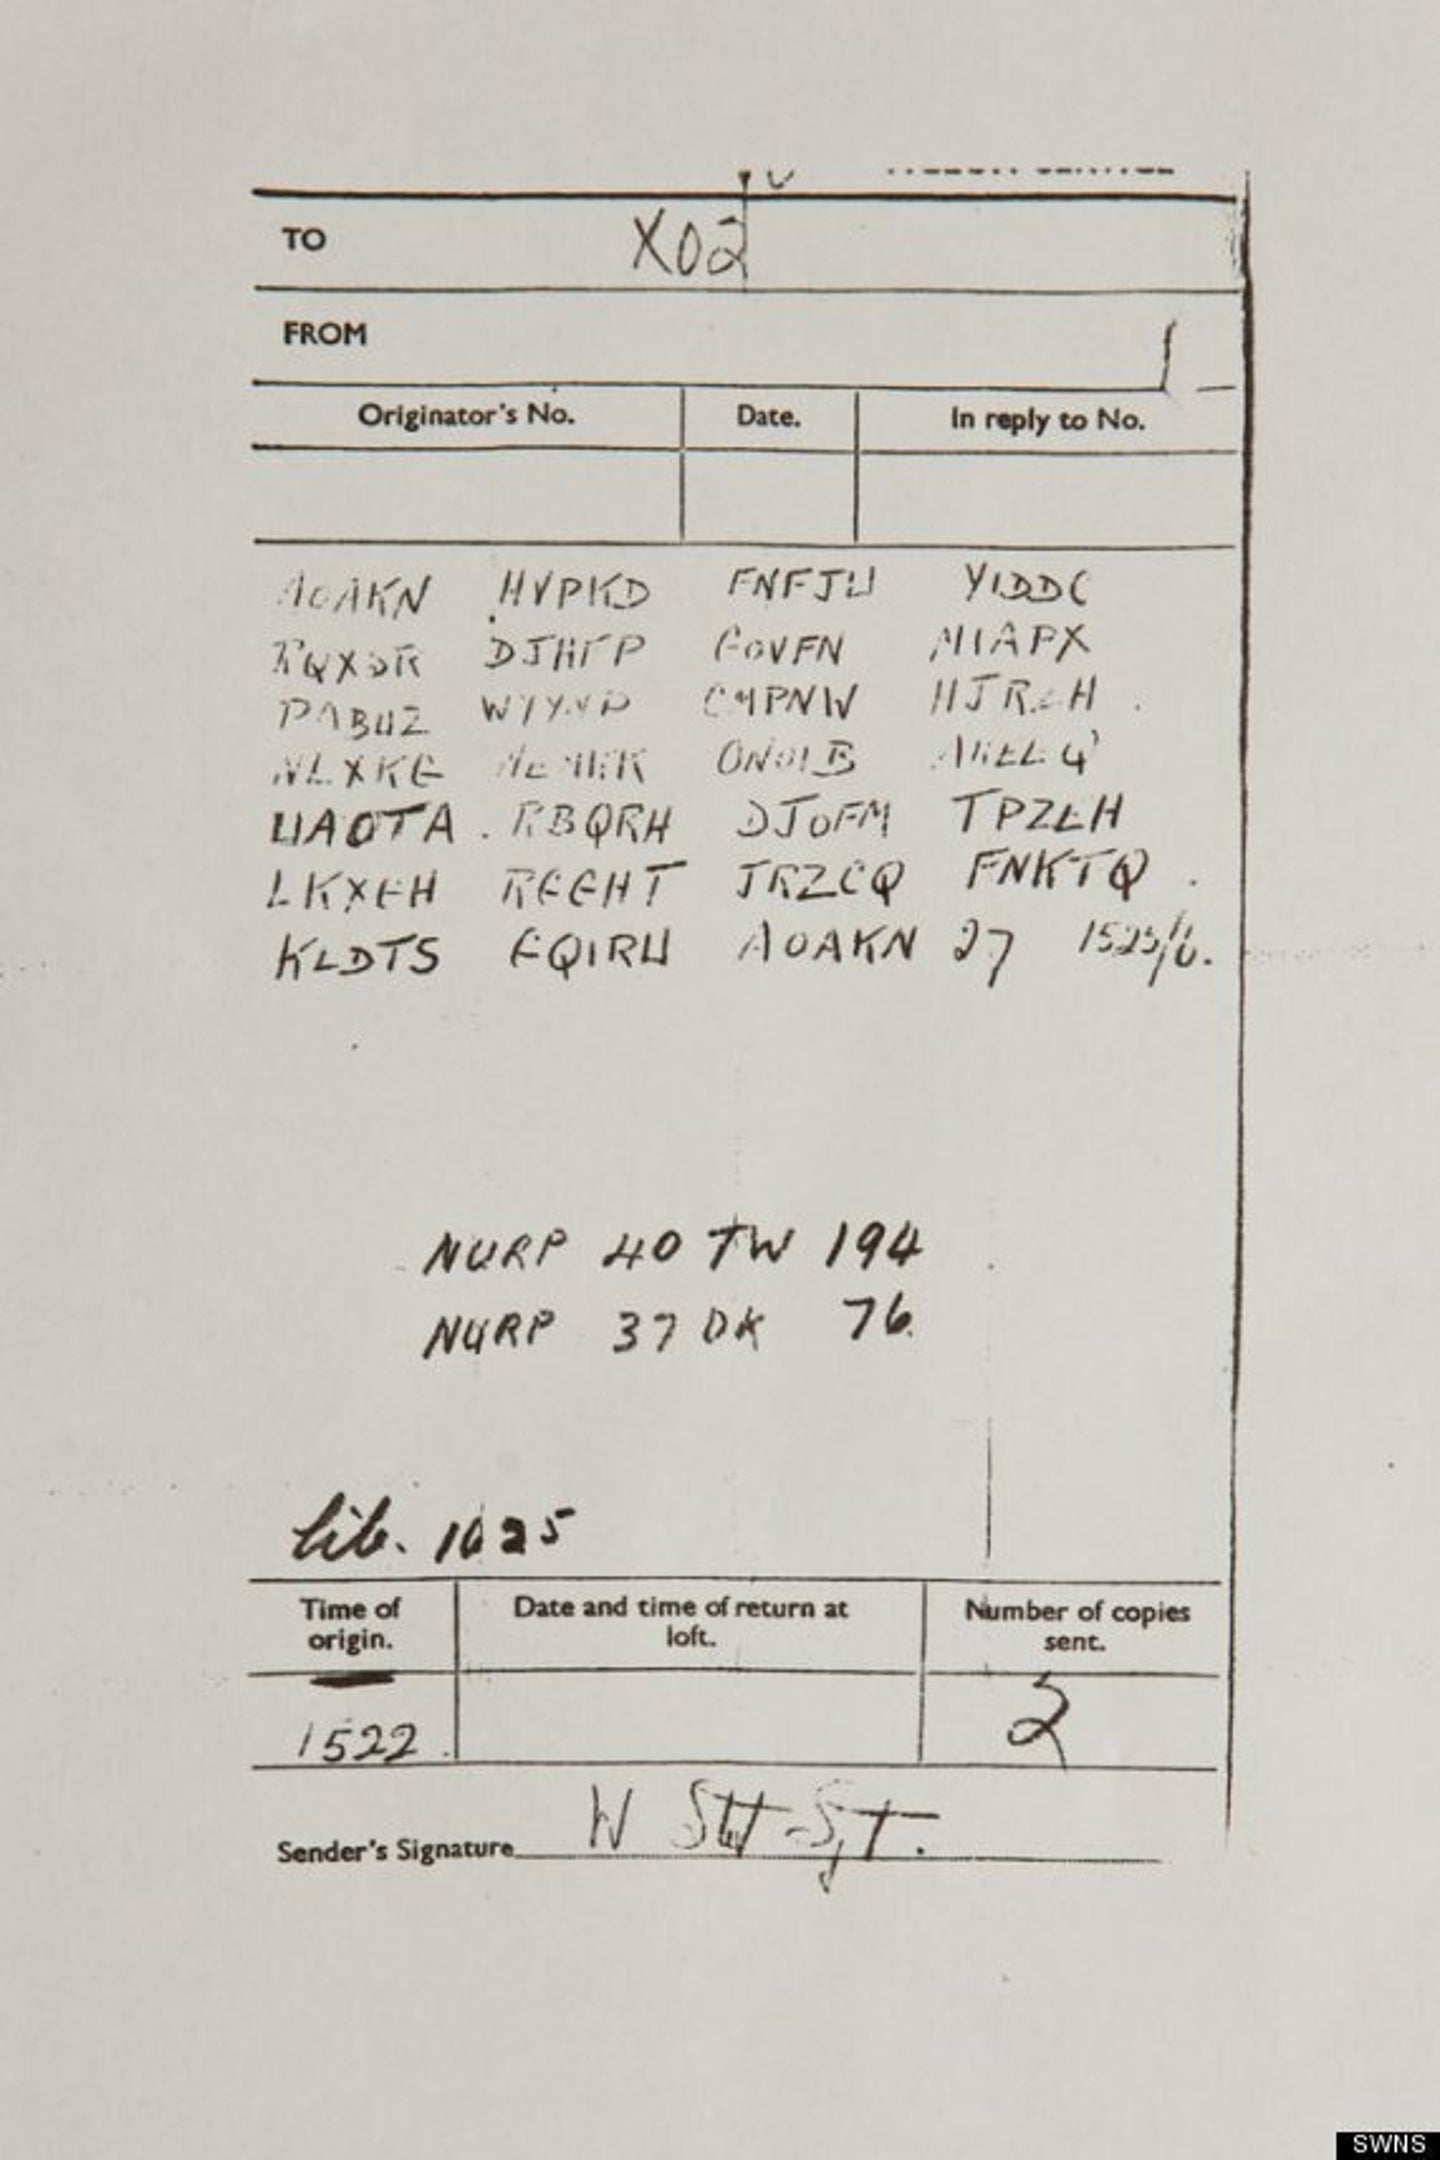 TO X02
FROM
Originator's No. Date. In reply to No.
AOAKN HVPKD FNFJU YIDDC
RQXSR DJHFP GOVFN MIAPX
PABUZ WYYNP CMPNW HJRZH
NLXKG ONOIB AKEEQ
UAOTA RBQRH DJOFM TPZEH
LKXGH RGGHT JRZCQ FNKTQ
KLDTS GQIRU AOAKN 27 1525/6.
NURP 40 TW 194
NURP 37 DK 76.
lib. 1625
Time of origin. Date and time of return at loft. Number of copies sent.
1522 2
Sender's Signature W Stot Sjt.
SWNS